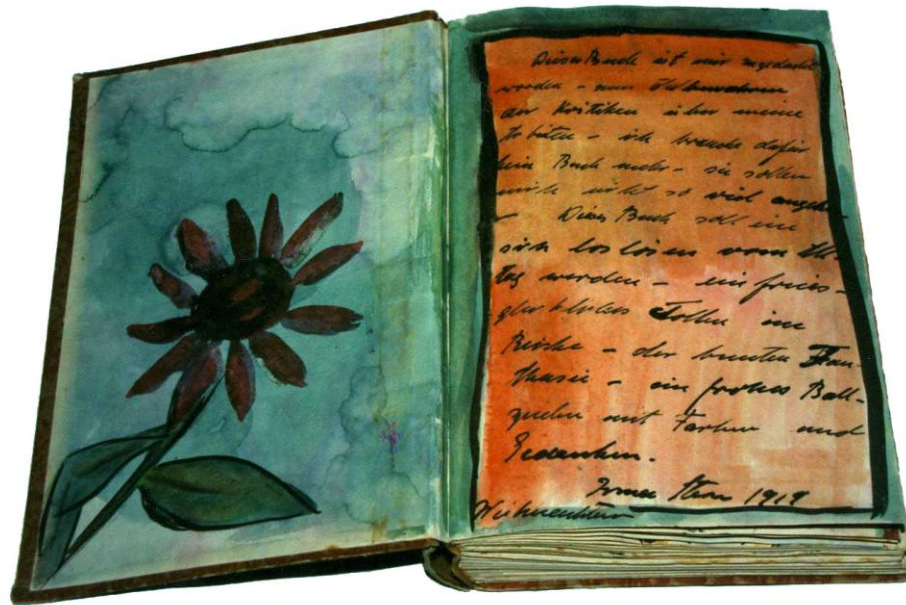 Dieses Buch ist mir zugedacht
worden – zum Aufbewahren
der Kritiken über meine
Arbeiten – ich brauche dafür
kein Buch mehr – sie sollen
mich nicht so viel angehen
– Dieses Buch soll ein
sich loslösen vom All-
tag werden – ein freies –
glückliches Tollen im
Reiche – der bunten Fan-
thasie – ein frohes Ball-
spielen mit Farben und
Gedanken.
Irma Stern 1919
Weihnachten